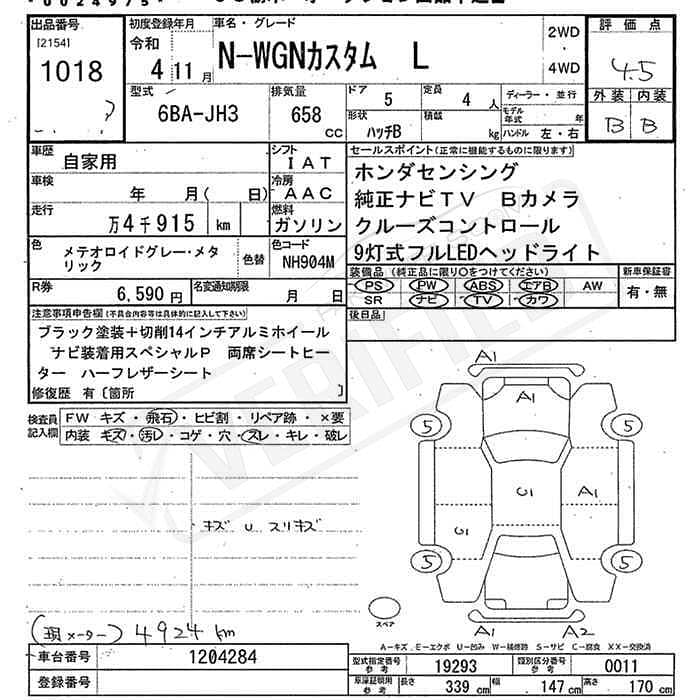 出品番号
[2154]
1018
初度登録年月
令和
4年 11月
車名・グレード
N-WGNカスタム L
2WD
・
4WD
評価点
4.5
外装 内装
B B
型式
6BA-JH3
排気量
658
CC
ドア
5
定員
4 人
ディーラー・並行
形状
ハッチB
積載
kg
モデル年式
年
ハンドル 左・右
車歴
自家用
シフト
IAT
車検
年 月( 日)
冷房
AAC
走行
万4千915 km
燃料
ガソリン
色
メテオロイドグレー・メタリック
色替
色コード
NH904M
R券
6,590円
名変通知期限
月 日
セールスポイント(正常に機能するものに限ります)
ホンダセンシング
純正ナビTV Bカメラ
クルーズコントロール
9灯式フルLEDヘッドライト
装備品 (純正品に限り○をつけてください)
PS PW ABS エアB AW
SR ナビ TV カワ
新車保証書
有・無
後日品
注意事項申告欄(不具合内容等は具体的に記入して下さい)
ブラック塗装+切削14インチアルミホイール
ナビ装着用スペシャルP 両席シートヒー
ター ハーフレザーシート
修復歴 有〔箇所 〕
検査員記入欄
FW キズ・飛石・ヒビ割・リペア跡・×要
内装 キズ・汚レ・コゲ・穴・スレ・キレ・破レ
キズ U スリキズ
(現メーター) 4924km
A1
A1
5 5
U1 A1
U1
5 5
スペア
A1 A2
A-キズ E-エクボ U-凹み W-補修跡 S-サビ C-腐食 XX-交換済
車台番号
1204284
登録番号
型式指定番号 参考
19293
類別区分番号 参考
0011
長さ 339 cm
幅 147 cm
高さ 170 cm
VERIFIED